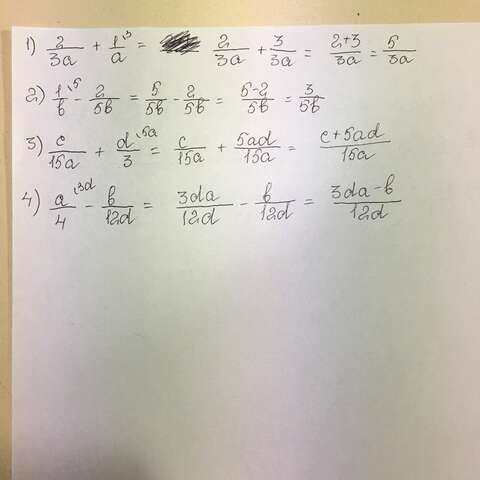 1) 2/3a + 1/a ^3 = 2/3a + 3/3a = 2+3/3a = 5/3a
2) 1/b ^5 - 2/5b = 5/5b - 2/5b = 5-2/5b = 3/5b
3) c/15a + d/3 ^5a = c/15a + 5ad/15a = c+5ad/15a
4) a/4 ^3d - b/12d = 3da/12d - b/12d = 3da-b/12d